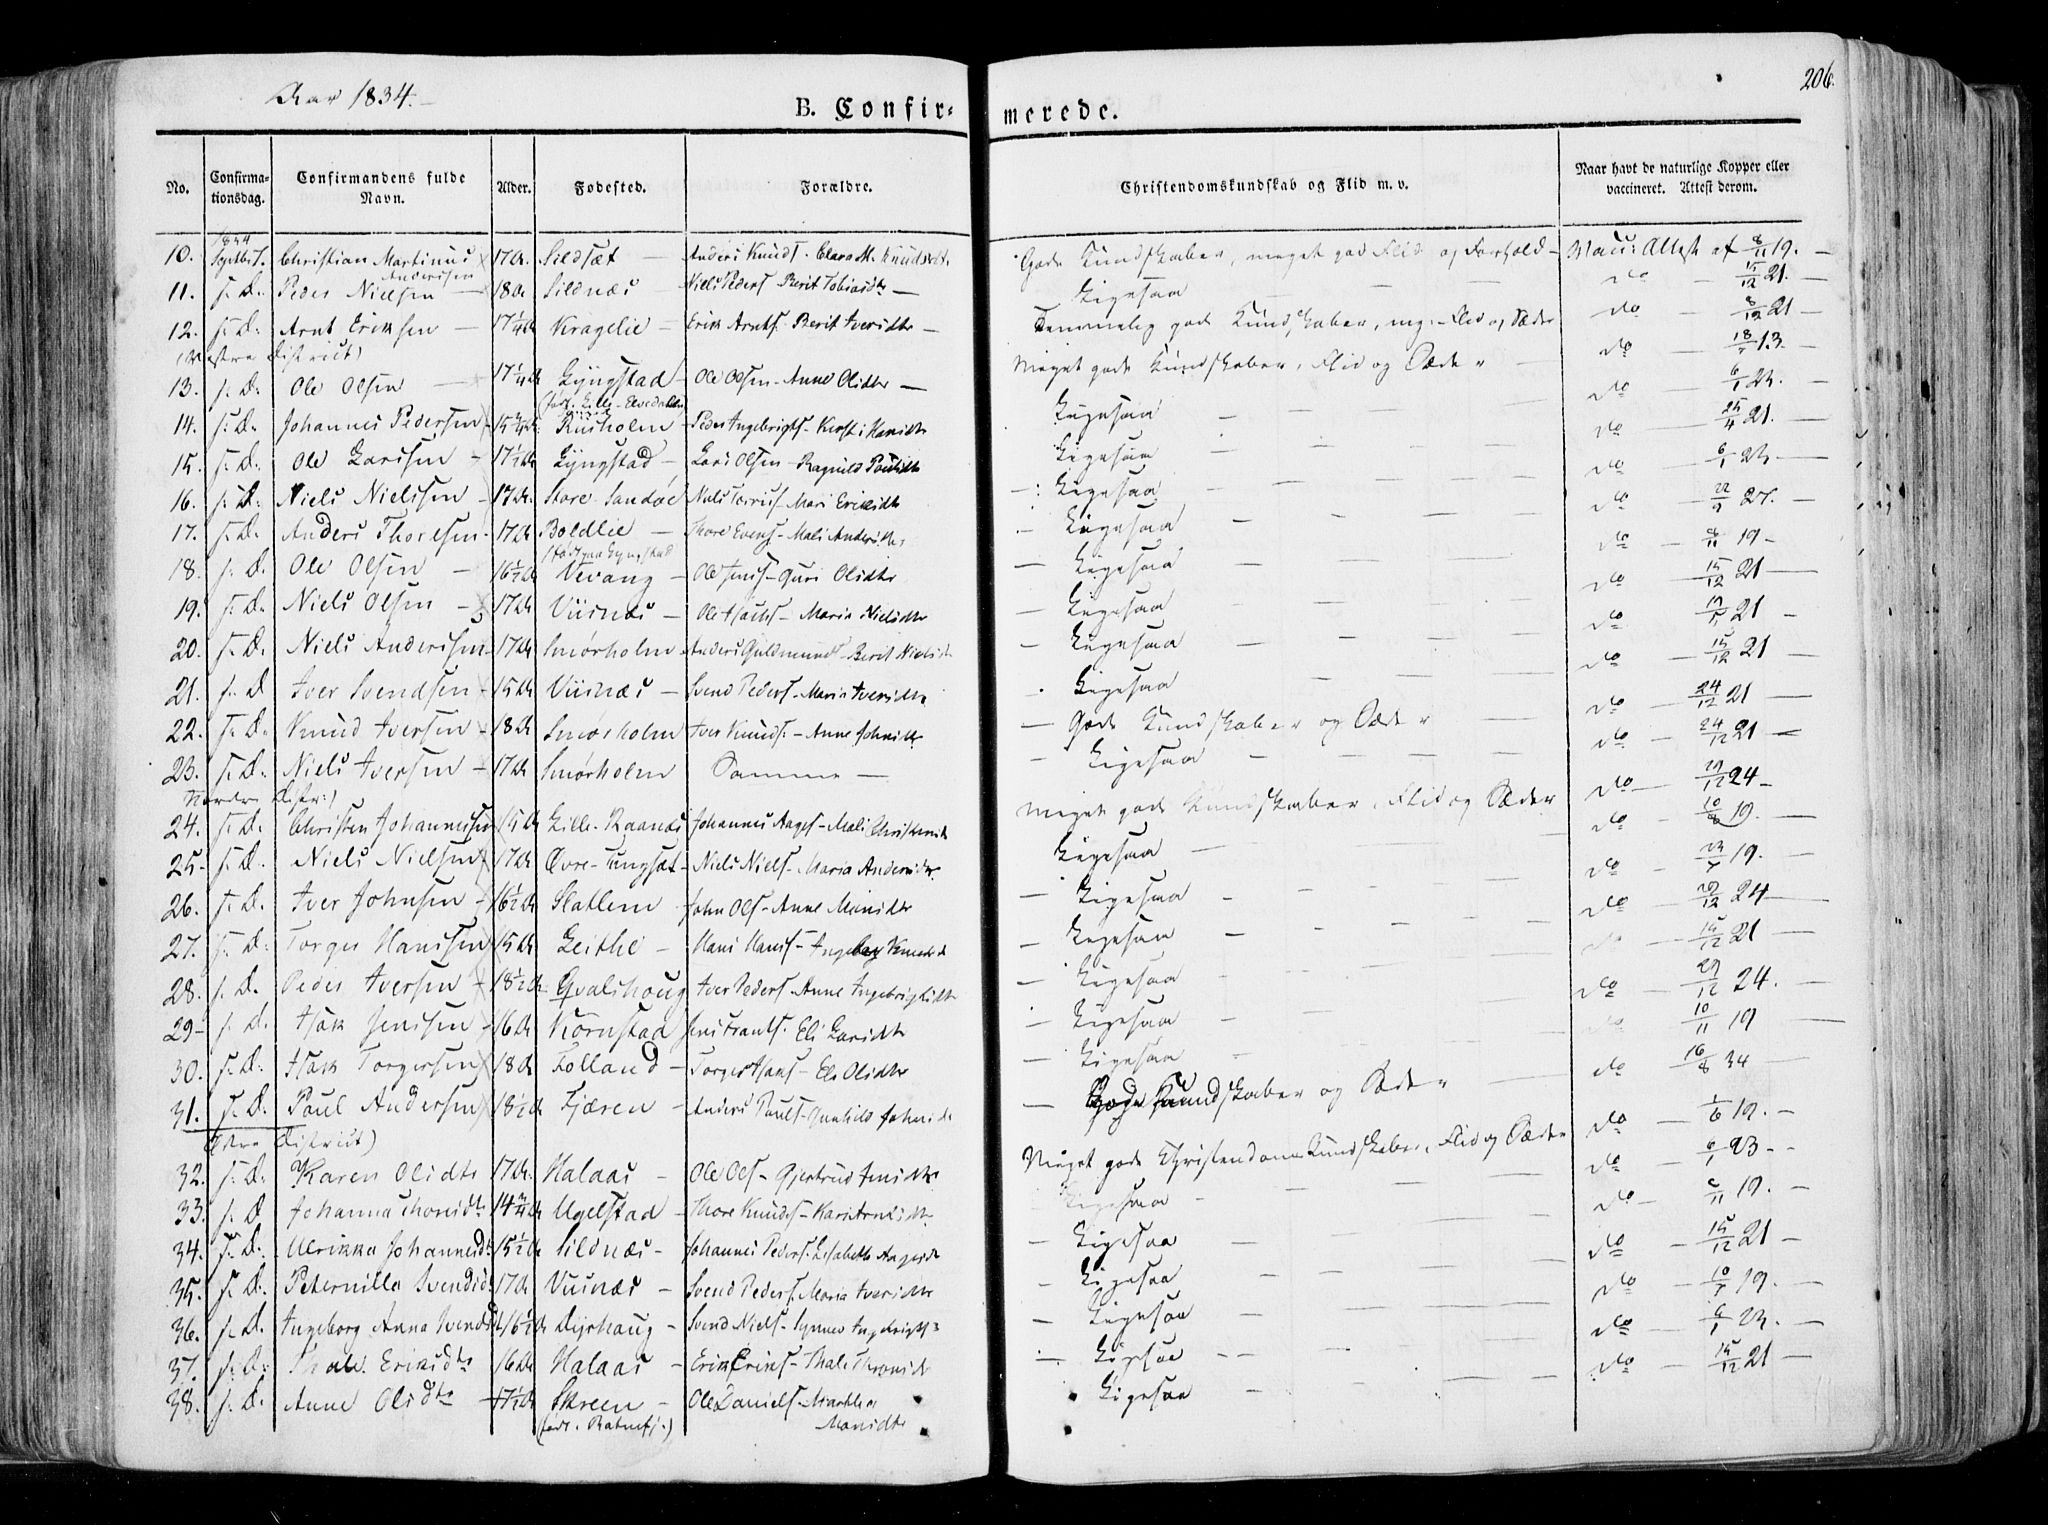 Aar 1834.
206.
B. Confir=
merede.
No. Confirma-tionsdag. Confirmandens fulde Navn. Alder. Fødested. Forældre. Christendomskundskab og Flid m. v. Naar havt de naturlige Kopper eller vaccineret. Attest derom.
1834
10. Septbr 7. Christian Martinus Andersen 17 A. Sildsæt Anders Knuds. Clara M. Knudsdt. Gode Kundskaber, meget god Flid og Forhold Vacc: Attest af 8/11 19.
11. s. D. Peder Nielsen 18 A Sildnæs Niels Peders. Berit Tobiasdtr Ligesaa do 15/12 21.
12. s. D. Arnt Eriksen 17 1/4 A Kragelie Erik Arnts. Berit Iversdtr Temmelig gode Kundskaber, mg. Flid og Sæder do 8/12 21
(Vestre District)
13. s. D. Ole Olsen 17 1/4 A Lyngstad Ole Olsen - Anne Olsdtr Meget gode Kundskaber, Flid og Sæder do
14. s. D. Johannes Pedersen 15 3/4 A Rusholm Peder Ingebrigts - Kersti Hansdtr Ligesaa do 6/1 23.
15. s. D. Ole Larssen 17 1/2 A Lyngstad Lars Olsen - Ragnild Paulsdtr Ligesaa do 25/4 21.
16. s. D. Niels Nielssen 17 A. Store Sandøe Niels - Mari Eriksdtr Ligesaa do 6/1 23
17. s. D. Anders Thoresen 17 A Boldlie Thore Evens - Mali Andersdtr Ligesaa do
(født paa Lyngstad
18. s. D. Ole Olsen 16 1/2 A Vevang Ole Jens - Guri Olsdtr Ligesaa do 8/11 19
19. s. D. Niels Olsen 17 A Viisnæs Ole Isachs - Maria Nielsdtr Ligesaa do 15/12 21
20. s. D. Niels Anderssen 17 A Smørholm Anders Guldmunds - Berit Nielsdtr Ligesaa do 21
21. s. D Iver Svendsen 15 A Viisnæs Svend Peders - Maria Iversdtr Ligesaa do 15/12 21
22. s. D. Knud Iversen 18 A Smørholm Iver Knuds. - Anne Johnsdtr Gode Kundskaber og Sæder do 24/12 21
23. s. D. Niels Iversen 17 A Smørholm Samme Ligesaa do 24/12 21
Nordre Distr:)
24. s. D. Christen Johannessen 15 A Lille-Raanæs Johannes Aages - Mali Christensdtr Meget gode Kundskaber, Flid og Sæder do 24
25. s. D. Niels Nielsen 17 A Øvre-Tungsæt Niels Niels - Maria Andersdtr Ligesaa do 19.
26. s. D. Iver Johnsen 16 1/2 A Slatlem John Ols - Anne Monsdtr Ligesaa do 19.
27. s. D Torger Hanssen 15 A Leithe Hans Hans - Ingebor Knudsdt Ligesaa do 24
28. s. D. Peder Iversen 18 1/2 A Qvalshoug Iver Peders - Anne Ingebrigtsdtr Ligesaa do 15/12 21
29 s. D. Isak Jenssen 16 A Kornstad Jens Frants. Eli Larsdtr Ligesaa do 24.
30. s. D. Isak Torgersen 18 A Folland Torger Hans - Eli Olsdtr Ligesaa do 10/11 19
31. s. D. Paul Andersen 18 1/2 A Fjæren Anders Pauls - Gunhild Johnsdt Gode Kundskaber og Sæder do 16/8 34
Østre District)
32. s. D. Karen Olsdtr 17 A. Halaas Ole Ols - Gjertrud Jensdtr Meget gode Christendomskundskaber, Flid og Sæder do 19.
33. s. D Johanna Thoresdtr 14 3/4 A Ugelstad Thore Knuds - Kari Arntsdtr Ligesaa do 6/1 23
34. s. D. Ulrikka Johannesdt 15 1/2 A Sildnæs Johannes Peders. Lisabeth Aagesdtr Ligesaa do 19.
35. s. D. Peternilla Svendsdt 17 A Viisnæs Svend Peders. Maria Iversdtr Ligesaa do 15/12 21
36. s. D. Ingeborg Anna Svendsdt 16 1/2 A Dyrhaug Svend Niels - Synnev Ingebrigtsd Ligesaa do 19.
37. s. D. Thale Eriksdtr 16 A Halaas Erik Eriks - Thale Thronsdt Ligesaa do 6/1 23.
38. s. D. Anne Olsdtr 17 1/2 A Skreen Ole Daniels - Martha Monsdtr Ligesaa do 15/12 21